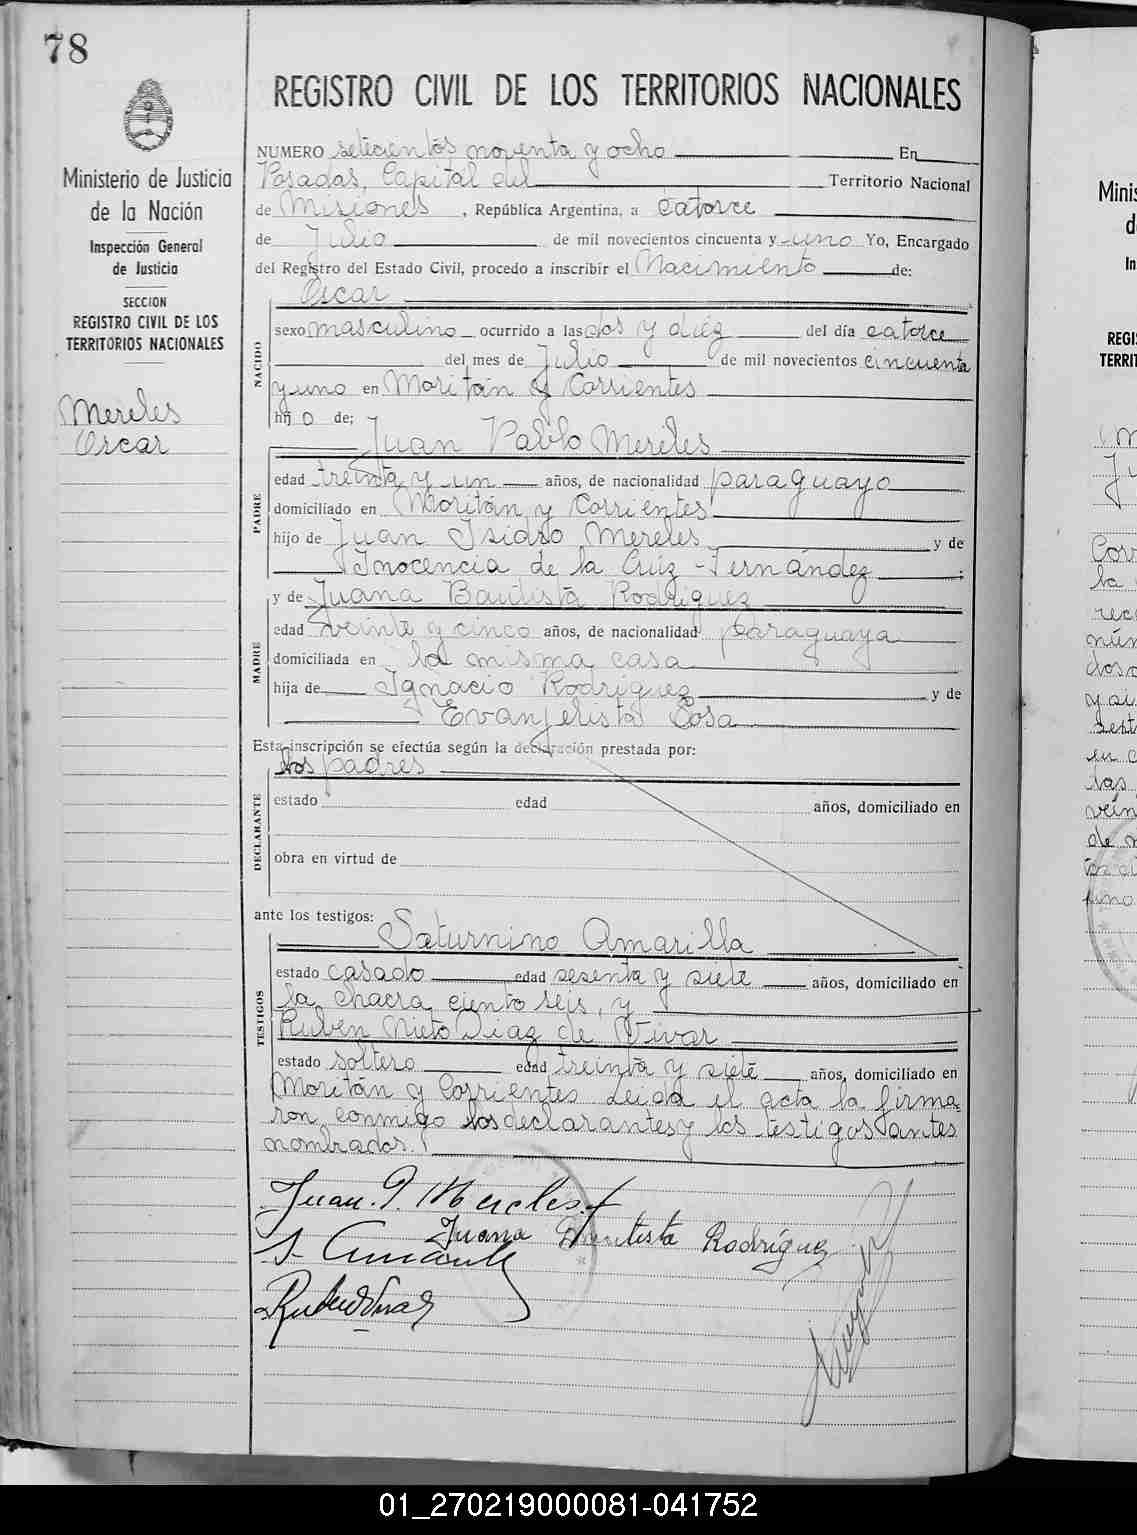 78
REGISTRO CIVIL DE LOS TERRITORIOS NACIONALES
Ministerio de Justicia
de la Nación
Inspección General
de Justicia
SECCION
REGISTRO CIVIL DE LOS
TERRITORIOS NACIONALES
Mereles
Oscar
NUMERO setecientos noventa y ocho En
Posadas, Capital del Territorio Nacional
de Misiones, República Argentina, a catorce
de Julio de mil novecientos cincuenta y uno Yo, Encargado
del Registro del Estado Civil, procedo a inscribir el Nacimiento de:
Oscar
NACIDO
sexo masculino ocurrido a las dos y diéz del día catorce
del mes de Julio de mil novecientos cincuenta
y uno en Moritán y Corrientes
hij o de;
Juan Pablo Mereles
PADRE
edad treinta y un años, de nacionalidad paraguayo
domiciliado en Moritán y Corrientes
hijo de Juan Isidro Mereles y de
Inocencia de la Crúz Fernández ;
y de Juana Bautista Rodríguez
MADRE
edad veinte y cinco años, de nacionalidad paraguaya
domiciliada en la misma casa
hija de Ignacio Rodríguez y de
Evanjelista Sosa
Esta inscripción se efectúa según la declaración prestada por:
los padres
DECLARANTE
estado edad años, domiciliado en
obra en virtud de
ante los testigos:
Saturnino Amarilla
TESTIGOS
estado casado edad sesenta y siete años, domiciliado en
la chacra ciento seis, y
Rubén Nieto Diaz de Vivar
estado soltero edad treinta y siete años, domiciliado en
Moritán y Corrientes Leida el acta la firma-
ron conmigo los declarantes y los testigos antes
nombrados.
Juan P. Mereles
Juana Bautista Rodríguez
01_270219000081-041752